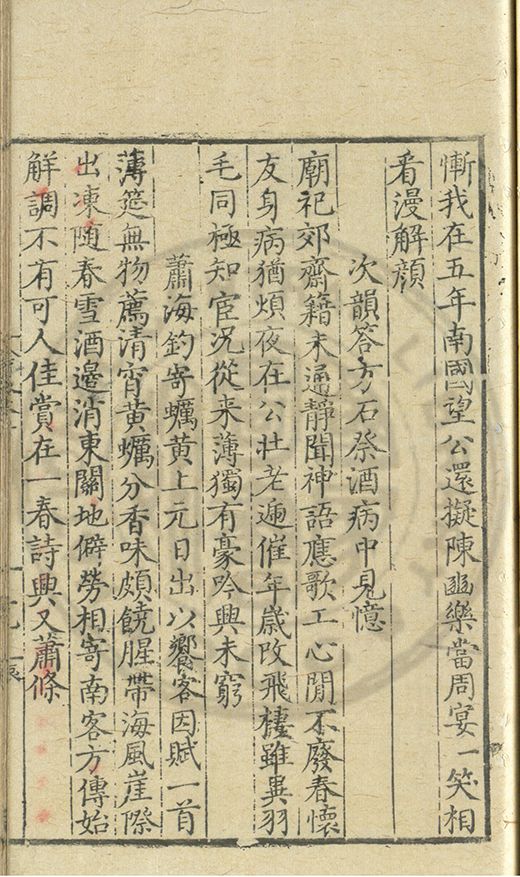 慚我在五年南國望公還擬陳豳樂當周宴一笑相
看漫解顔
次韻答方石祭酒病中見憶
廟祀郊齋籍未通靜聞神語應歌工心閒不廢春懷
友身病猶煩夜在公壮老遞催年歲改飛棲雖異羽
毛同極知宦況從来薄獨有豪吟興未窮
蕭海釣寄蠣黃上元日出以饗客因賦一首
薄筵無物薦清宵黃蠣分香味頗饒腥帶海風崖際
出凍隨春雪酒邉消東關地僻勞相寄南客方傳始
解調不有可人佳賞在一春詩興又蕭條